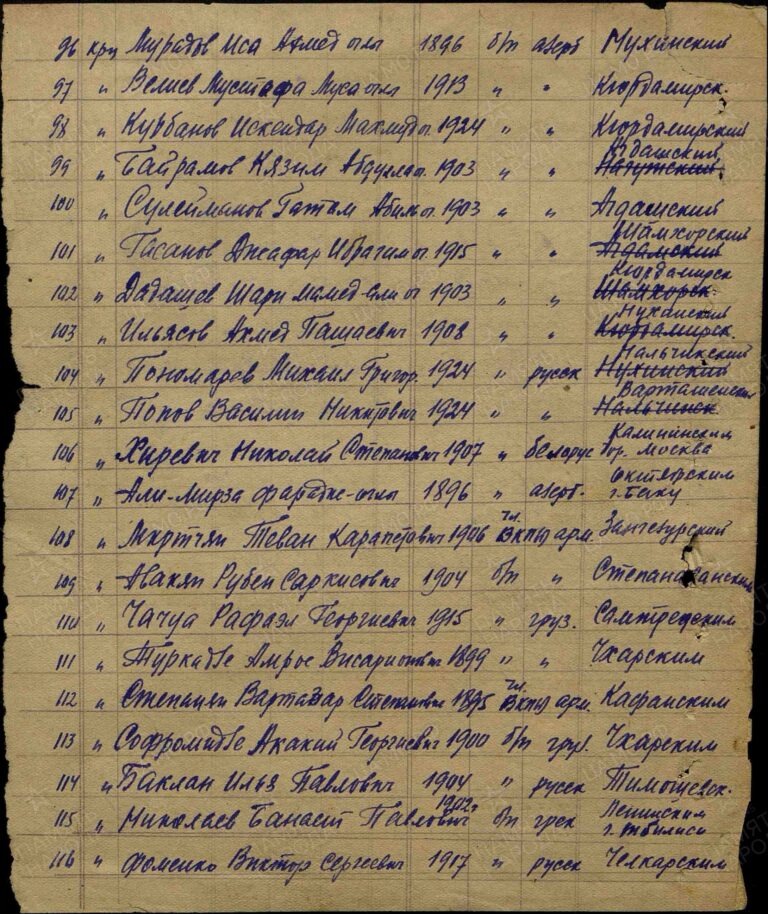 96 крц Мурадов Иса Ахмед оглы 1896 б/п азерб Мухинский
97 " Велиев Мустафа Муса оглы 1913 " " Кюрдамирск.
98 " Курбанов Искендар Махмуд ог. 1924 " " Кюрдамирский
Агдашский
99 " Байрамов Кязим Абдулла ог. 1903 " "
100 " Сулейманов Гатам ог. 1903 " " Агдашский
Шамхорский
101 " Гасанов Джафар Ибрагим ог. 1915 " " Агдамский
Кюрдамирск
102 " Дадашев Шари Мамед-Али ог 1903 " " Шамхорск.
Нухинский
103 " Ильясов Ахмед Пашаевич 1908 " " Кюрдамирск.
Нальчикский
104 " Пономарев Михаил Григор. 1924 " русск Нухинский
Варташенский
105 " Попов Василий Никитович 1924 " " Нальчинск
Калининским
106 " Хиревич Николай Степанович 1907 " белорус гор. Москва
Октябрским
107 " Али-Мирза оглы 1896 " азерб. г. Баку
108 " Мкртчян Теван Карапетович 1906 чл. ВКП(б) арм. Зангезурский
109 " Авакян Рубен Саркисович 1904 б/п " Степанаванским
110 " Чачуа Рафаэл Георгиевич 1915 " груз. Самтредским
111 " Туркадзе Амрос Висарионович 1899 " " Чхарским
112 " Степанян Вартазар Степанович 1895 чл. ВКП(б) арм. Кафанским
113 " Софромадзе Акакий Георгиевич 1900 б/п груз. Чхарским
114 " Баклан Илья Павлович 1904 " русск Тимошевск.
1902г Ленинским
115 " Николаев Банасит Павлович б/п грек г. Тбилиси
116 " Фоменко Виктор Сергеевич 1917 " русск Челкарским